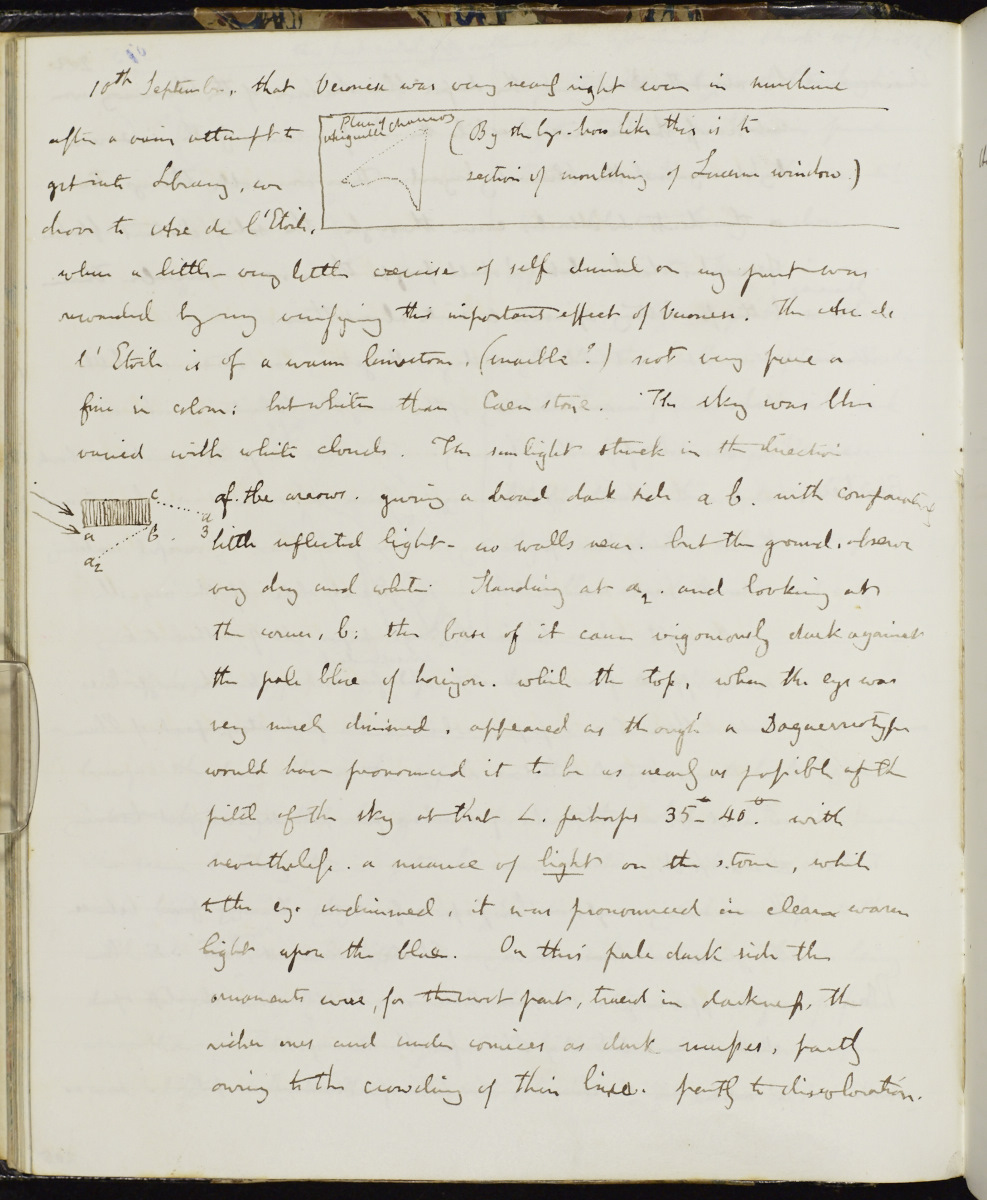 10th September, that Veronese was very nearly right even in sunshine
after a vain attempt to
get into Library, we
drove to Arc de l'Etoile,
Plan of
aiguille charmoz
(By the bye - how like this is to
section of moulding of Lucerne window.)
where a little - very little exercise of self denial on my part was
rewarded by my verifying this important effect of Veronese. The Arc de
l'Etoile is of a warm limestone, (marble?) not very pure or
fine in colour: but whiter than Caen stone. The sky was blue
varied with white clouds. The sunlight struck in the direction
of the arrows. giving a broad dark side a b. with comparatively
little reflected light - no walls near. but the ground, observe
very dry and white. Standing at a2. and looking at
the corner, b: the base of it came vigorously dark against
the pale blue of horizon. while the top, when the eye was
very much dimmed, appeared as though a Daguerreotype
would have pronounced it to be as nearly as possible of the
pitch of the sky at that L. perhaps 35°- 40°. with
nevertheless. a nuance of light on the stone, while
to the eye undimmed, it was pronounced in clear warm
light upon the blue. On this pale dark side the
ornaments were, for the most part, traced in darkness, the
richer ones and under cornices as dark masses, partly
owing to the crowding of their lines. partly to discoloration.
c
a
b.
d
3
a2